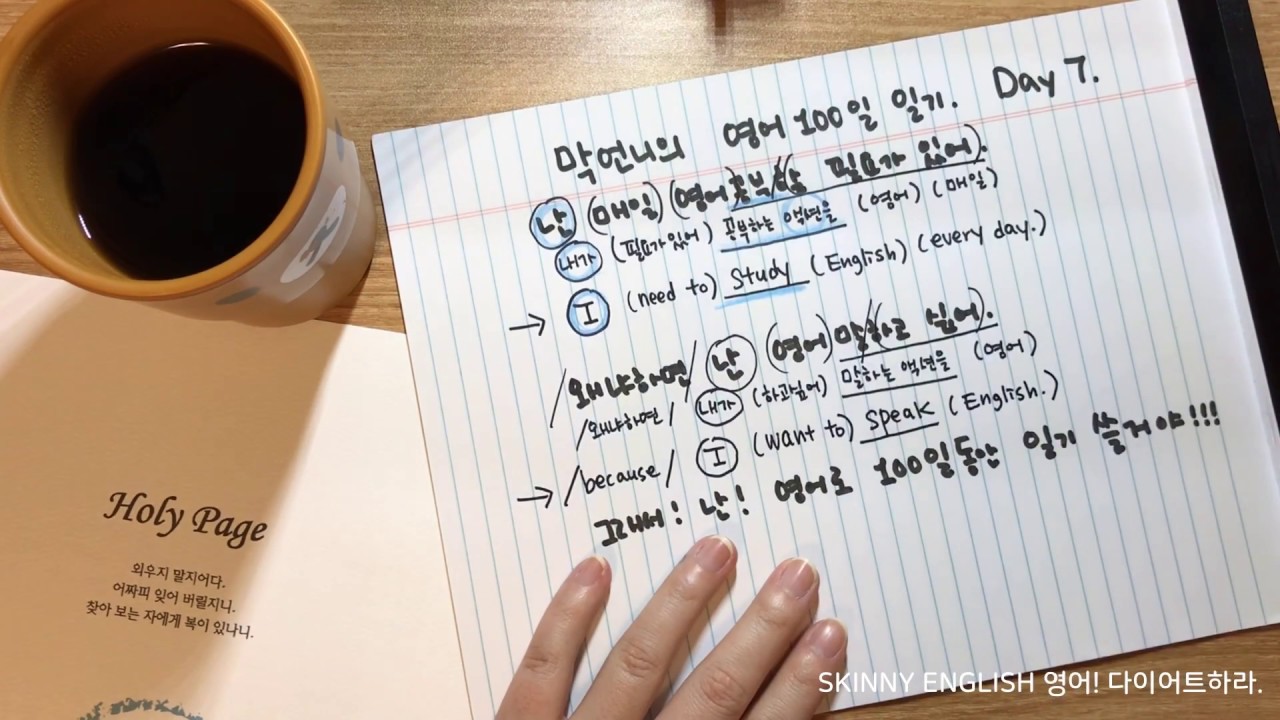 막언니의 영어 100일 일기. Day 7.
난 (매일) (영어) 공부/(할 필요가 있어).
내가 (필요가 있어) 공부하는 액션을 (영어) (매일)
→ I (need to) study (English) (every day.)
/왜냐하면/ 난 (영어) 말/(하고 싶어).
/왜냐하면/ 내가 (하고싶어) 말하는 액션을 (영어)
→ /because/ I (want to) speak (English.)
그래서! 난! 영어로 100일동안 일기 쓸거야!!!
Holy Page
외우지 말지어다.
어짜피 잊어 버릴지니.
찾아 보는 자에게 복이 있나니.
SKINNY ENGLISH 영어! 다이어트하라.